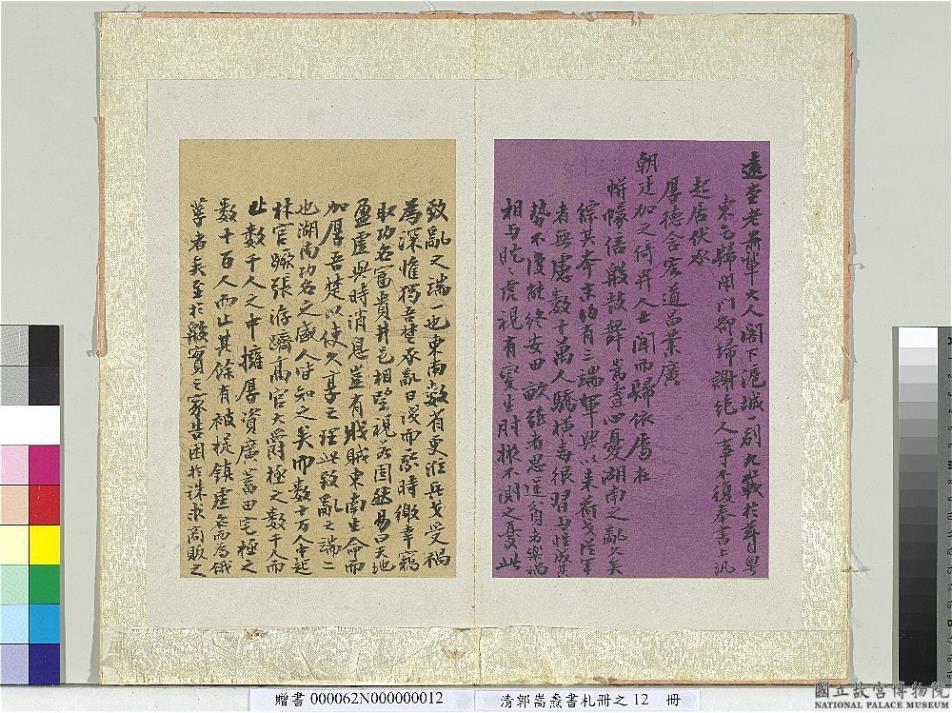 遠堂老前輩大人閣下滬城別九載於茲自粵
東乞歸閉門卻掃謝絕人事不復奉書上汎
起居伏承
厚德含宏道昌業廣
朝廷加之倚畀人士聞而歸依屬在
帡幪倍殷鼓舞嵩燾心憂湖南之亂久矣
綜其本末約有三端軍興以來荷戈從軍
者無慮數十萬人驕橫毒很習與性成其
勢不復能終安田畝強者思逞翕者樂禍
相與眈眈虎視有變生肘掖不測之憂此
致亂之端一也東南數省更涉兵戈受禍
為深惟獨吾楚承亂日淺而緣時徼幸竊
取功名富貴井邑相望視若固然易曰天地
盈虛與時消息豈有戕賊東南生命而
加厚吾楚以使久享之理此致亂之端二
也湖南功名之盛人皆知之矣而數十萬人中起
林官蹶張洊躋高官大爵極之數千人而
止數千人之中擁厚資廣蓄田宅極之
數十百人而止其餘有被褫鎮虛名而為餓
莩者矣至於殷實之家告困於誅求商販之
贈書 000062N000000012
清郭嵩燾書札冊之 12 冊
國立故宮博物院
NATIONAL PALACE MUSEUM